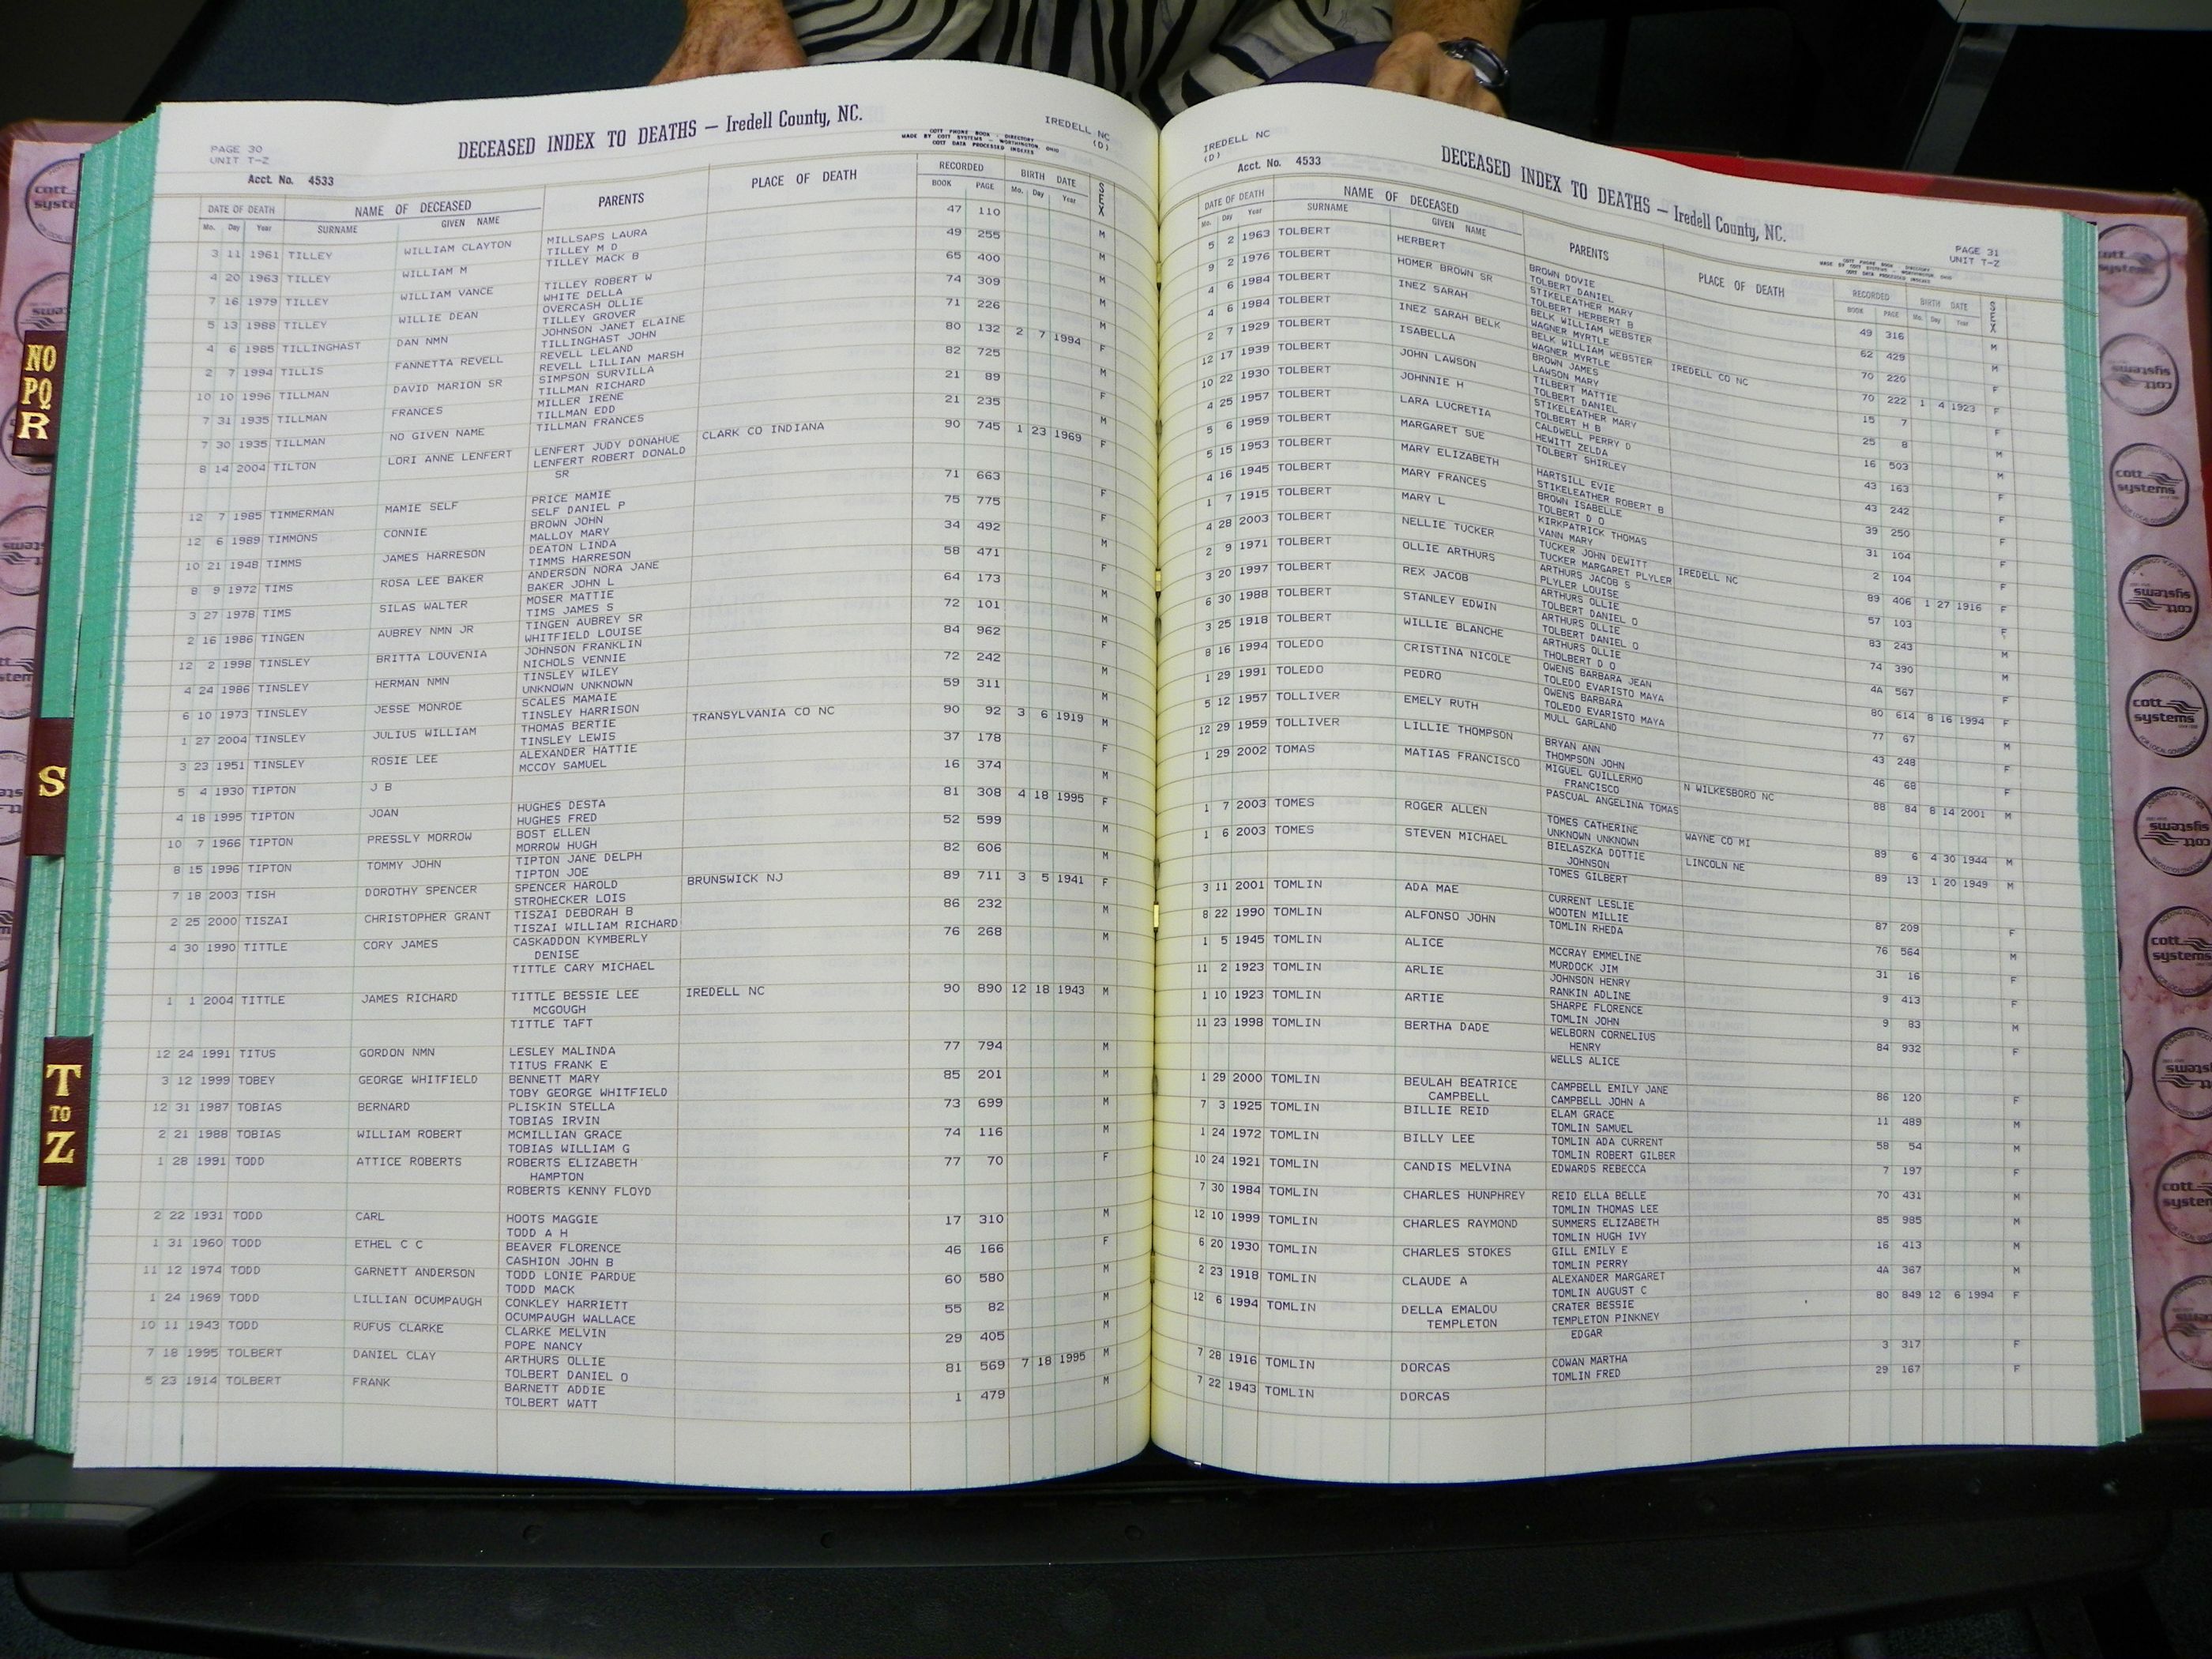 PAGE 30
UNIT T-Z
DECEASED INDEX TO DEATHS — Iredell County, NC.
COTT PHONE BOOK - DIRECTORY
MADE BY COTT SYSTEMS - WORTHINGTON, OHIO
COTT DATA PROCESSED INDEXES
IREDELL NC
(D)
Acct. No. 4533
DATE OF DEATH NAME OF DECEASED PARENTS PLACE OF DEATH RECORDED BIRTH DATE SEX
Mo. Day Year SURNAME GIVEN NAME BOOK PAGE Mo. Day Year
3 11 1961 TILLEY WILLIAM CLAYTON MILLSAPS LAURA 47 110 M
TILLEY M D
4 20 1963 TILLEY WILLIAM M TILLEY MACK B 49 255 M
7 16 1979 TILLEY WILLIAM VANCE TILLEY ROBERT W 65 400 M
WHITE DELLA
5 13 1988 TILLEY WILLIE DEAN OVERCASH OLLIE 74 309 M
TILLEY GROVER
4 6 1985 TILLINGHAST DAN NMN JOHNSON JANET ELAINE 71 226 M
TILLINGHAST JOHN
2 7 1994 TILLIS FANNETTA REVELL REVELL LELAND 80 132 2 7 1994 F
REVELL LILLIAN MARSH
10 10 1996 TILLMAN DAVID MARION SR SIMPSON SURVILLA 82 725 M
TILLMAN RICHARD
7 31 1935 TILLMAN FRANCES MILLER IRENE 21 89
TILLMAN EDD
7 30 1935 TILLMAN NO GIVEN NAME TILLMAN FRANCES 21 235 M
8 14 2004 TILTON LORI ANNE LENFERT LENFERT JUDY DONAHUE CLARK CO INDIANA 90 745 1 23 1969 F
LENFERT ROBERT DONALD
SR
12 7 1985 TIMMERMAN MAMIE SELF PRICE MAMIE 71 663 F
SELF DANIEL P
12 6 1989 TIMMONS CONNIE BROWN JOHN 75 775 F
MALLOY MARY
10 21 1948 TIMMS JAMES HARRESON DEATON LINDA 34 492 M
TIMMS HARRESON
8 9 1972 TIMS ROSA LEE BAKER ANDERSON NORA JANE 58 471 F
BAKER JOHN L
3 27 1978 TIMS SILAS WALTER MOSER MATTIE 64 173 M
TIMS JAMES S
2 16 1986 TINGEN AUBREY NMN JR TINGEN AUBREY SR 72 101 M
WHITFIELD LOUISE
12 2 1998 TINSLEY BRITTA LOUVENIA JOHNSON FRANKLIN 84 962 F
NICHOLS VENNIE
4 24 1986 TINSLEY HERMAN NMN TINSLEY WILEY 72 242 M
UNKNOWN UNKNOWN
6 10 1973 TINSLEY JESSE MONROE SCALES MAMAIE 59 311 M
TINSLEY HARRISON
1 27 2004 TINSLEY JULIUS WILLIAM THOMAS BERTIE TRANSYLVANIA CO NC 90 92 3 6 1919 M
TINSLEY LEWIS
3 23 1951 TINSLEY ROSIE LEE ALEXANDER HATTIE 37 178 F
MCCOY SAMUEL
5 4 1930 TIPTON J B 16 374 M
4 18 1995 TIPTON JOAN HUGHES DESTA 81 308 4 18 1995 F
HUGHES FRED
10 7 1966 TIPTON PRESSLY MORROW BOST ELLEN 52 599 M
MORROW HUGH
8 15 1996 TIPTON TOMMY JOHN TIPTON JANE DELPH 82 606 M
TIPTON JOE
7 18 2003 TISH DOROTHY SPENCER SPENCER HAROLD BRUNSWICK NJ 89 711 3 5 1941 F
STROHECKER LOIS
2 25 2000 TISZAI CHRISTOPHER GRANT TISZAI DEBORAH B 86 232 M
TISZAI WILLIAM RICHARD
4 30 1990 TITTLE CORY JAMES CASKADDON KYMBERLY 76 268 M
DENISE
TITTLE CARY MICHAEL
1 1 2004 TITTLE JAMES RICHARD TITTLE BESSIE LEE IREDELL NC 90 890 12 18 1943 M
MCGOUGH
TITTLE TAFT
12 24 1991 TITUS GORDON NMN LESLEY MALINDA 77 794 M
TITUS FRANK E
3 12 1999 TOBEY GEORGE WHITFIELD BENNETT MARY 85 201 M
TOBY GEORGE WHITFIELD
12 31 1987 TOBIAS BERNARD PLISKIN STELLA 73 699 M
TOBIAS IRVIN
2 21 1988 TOBIAS WILLIAM ROBERT MCMILLIAN GRACE 74 116 M
TOBIAS WILLIAM G
1 28 1991 TODD ATTICE ROBERTS ROBERTS ELIZABETH 77 70 F
HAMPTON
ROBERTS KENNY FLOYD
2 22 1931 TODD CARL HOOTS MAGGIE 17 310 M
TODD A H
1 31 1960 TODD ETHEL C C BEAVER FLORENCE 46 166 F
CASHION JOHN B
11 12 1974 TODD GARNETT ANDERSON TODD LONIE PARDUE 60 580 M
TODD MACK
1 24 1969 TODD LILLIAN OCUMPAUGH CONKLEY HARRIETT 55 82 M
OCUMPAUGH WALLACE
10 11 1943 TODD RUFUS CLARKE CLARKE MELVIN 29 405 M
POPE NANCY
7 18 1995 TOLBERT DANIEL CLAY ARTHURS OLLIE 81 569 7 18 1995 M
TOLBERT DANIEL O
5 23 1914 TOLBERT FRANK BARNETT ADDIE 1 479 M
TOLBERT WATT
IREDELL NC
(D)
Acct. No. 4533
DECEASED INDEX TO DEATHS — Iredell County, NC.
COTT PHONE BOOK - DIRECTORY
MADE BY COTT SYSTEMS - WORTHINGTON, OHIO
COTT DATA PROCESSED INDEXES
PAGE 31
UNIT T-Z
DATE OF DEATH NAME OF DECEASED PARENTS PLACE OF DEATH RECORDED BIRTH DATE SEX
Mo. Day Year SURNAME GIVEN NAME BOOK PAGE Mo. Day Year
5 2 1963 TOLBERT HERBERT BROWN DOVIE 49 316 M
TOLBERT DANIEL
9 2 1976 TOLBERT HOMER BROWN SR STIKELEATHER MARY 62 429 M
TOLBERT HERBERT B
4 6 1984 TOLBERT INEZ SARAH BELK WILLIAM WEBSTER 70 220 F
WAGNER MYRTLE
4 6 1984 TOLBERT INEZ SARAH BELK BELK WILLIAM WEBSTER IREDELL CO NC 70 222 1 4 1923 F
WAGNER MYRTLE
2 7 1929 TOLBERT ISABELLA BROWN JAMES 15 7 F
LAWSON MARY
12 17 1939 TOLBERT JOHN LAWSON TILBERT MATTIE 25 8 M
TOLBERT DANIEL
10 22 1930 TOLBERT JOHNNIE H STIKELEATHER MARY 16 503 M
TOLBERT H B
4 25 1957 TOLBERT LARA LUCRETIA CALDWELL PERRY D 43 163 F
HEWITT ZELDA
5 6 1959 TOLBERT MARGARET SUE TOLBERT SHIRLEY 43 242 F
5 15 1953 TOLBERT MARY ELIZABETH HARTSILL EVIE 39 250 F
STIKELEATHER ROBERT B
4 16 1945 TOLBERT MARY FRANCES BROWN ISABELLE 31 104 F
TOLBERT D O
1 7 1915 TOLBERT MARY L KIRKPATRICK THOMAS 2 104 F
VANN MARY
4 28 2003 TOLBERT NELLIE TUCKER TUCKER JOHN DEWITT IREDELL NC 89 406 1 27 1916 F
TUCKER MARGARET PLYLER
2 9 1971 TOLBERT OLLIE ARTHURS ARTHURS JACOB S 57 103 F
PLYLER LOUISE
3 20 1997 TOLBERT REX JACOB ARTHURS OLLIE 83 243 M
TOLBERT DANIEL O
6 30 1988 TOLBERT STANLEY EDWIN ARTHURS OLLIE 74 390 M
TOLBERT DANIEL O
3 25 1918 TOLBERT WILLIE BLANCHE ARTHURS OLLIE 4A 567 F
THOLBERT D O
8 16 1994 TOLEDO CRISTINA NICOLE OWENS BARBARA JEAN 80 614 8 16 1994 F
TOLEDO EVARISTO MAYA
1 29 1991 TOLEDO PEDRO OWENS BARBARA 77 67 M
TOLEDO EVARISTO MAYA
5 12 1957 TOLLIVER EMELY RUTH MULL GARLAND 43 248 F
12 29 1959 TOLLIVER LILLIE THOMPSON BRYAN ANN 46 68 F
THOMPSON JOHN
1 29 2002 TOMAS MATIAS FRANCISCO MIGUEL GUILLERMO N WILKESBORO NC 88 84 8 14 2001 M
FRANCISCO
PASCUAL ANGELINA TOMAS
1 7 2003 TOMES ROGER ALLEN TOMES CATHERINE WAYNE CO MI 89 6 4 30 1944 M
UNKNOWN UNKNOWN
1 6 2003 TOMES STEVEN MICHAEL BIELASZKA DOTTIE LINCOLN NE 89 13 1 20 1949 M
JOHNSON
TOMES GILBERT
3 11 2001 TOMLIN ADA MAE CURRENT LESLIE 87 209 F
WOOTEN MILLIE
8 22 1990 TOMLIN ALFONSO JOHN TOMLIN RHEDA 76 564 M
1 5 1945 TOMLIN ALICE MCCRAY EMMELINE 31 16 F
MURDOCK JIM
11 2 1923 TOMLIN ARLIE JOHNSON HENRY 9 413 F
RANKIN ADLINE
1 10 1923 TOMLIN ARTIE SHARPE FLORENCE 9 83 M
TOMLIN JOHN
11 23 1998 TOMLIN BERTHA DADE WELBORN CORNELIUS 84 932 F
HENRY
WELLS ALICE
1 29 2000 TOMLIN BEULAH BEATRICE CAMPBELL EMILY JANE 86 120 F
CAMPBELL CAMPBELL JOHN A
7 3 1925 TOMLIN BILLIE REID ELAM GRACE 11 489 M
TOMLIN SAMUEL
1 24 1972 TOMLIN BILLY LEE TOMLIN ADA CURRENT 58 54 M
TOMLIN ROBERT GILBER
10 24 1921 TOMLIN CANDIS MELVINA EDWARDS REBECCA 7 197 F
7 30 1984 TOMLIN CHARLES HUNPHREY REID ELLA BELLE 70 431 M
TOMLIN THOMAS LEE
12 10 1999 TOMLIN CHARLES RAYMOND SUMMERS ELIZABETH 85 985 M
TOMLIN HUGH IVY
6 20 1930 TOMLIN CHARLES STOKES GILL EMILY E 16 413 M
TOMLIN PERRY
2 23 1918 TOMLIN CLAUDE A ALEXANDER MARGARET 4A 367 M
TOMLIN AUGUST C
12 6 1994 TOMLIN DELLA EMALOU CRATER BESSIE 80 849 12 6 1994 F
TEMPLETON TEMPLETON PINKNEY
EDGAR
7 28 1916 TOMLIN DORCAS COWAN MARTHA 3 317 F
TOMLIN FRED
7 22 1943 TOMLIN DORCAS 29 167 F
NO
PQ
R
S
T
TO
Z
cott
systems